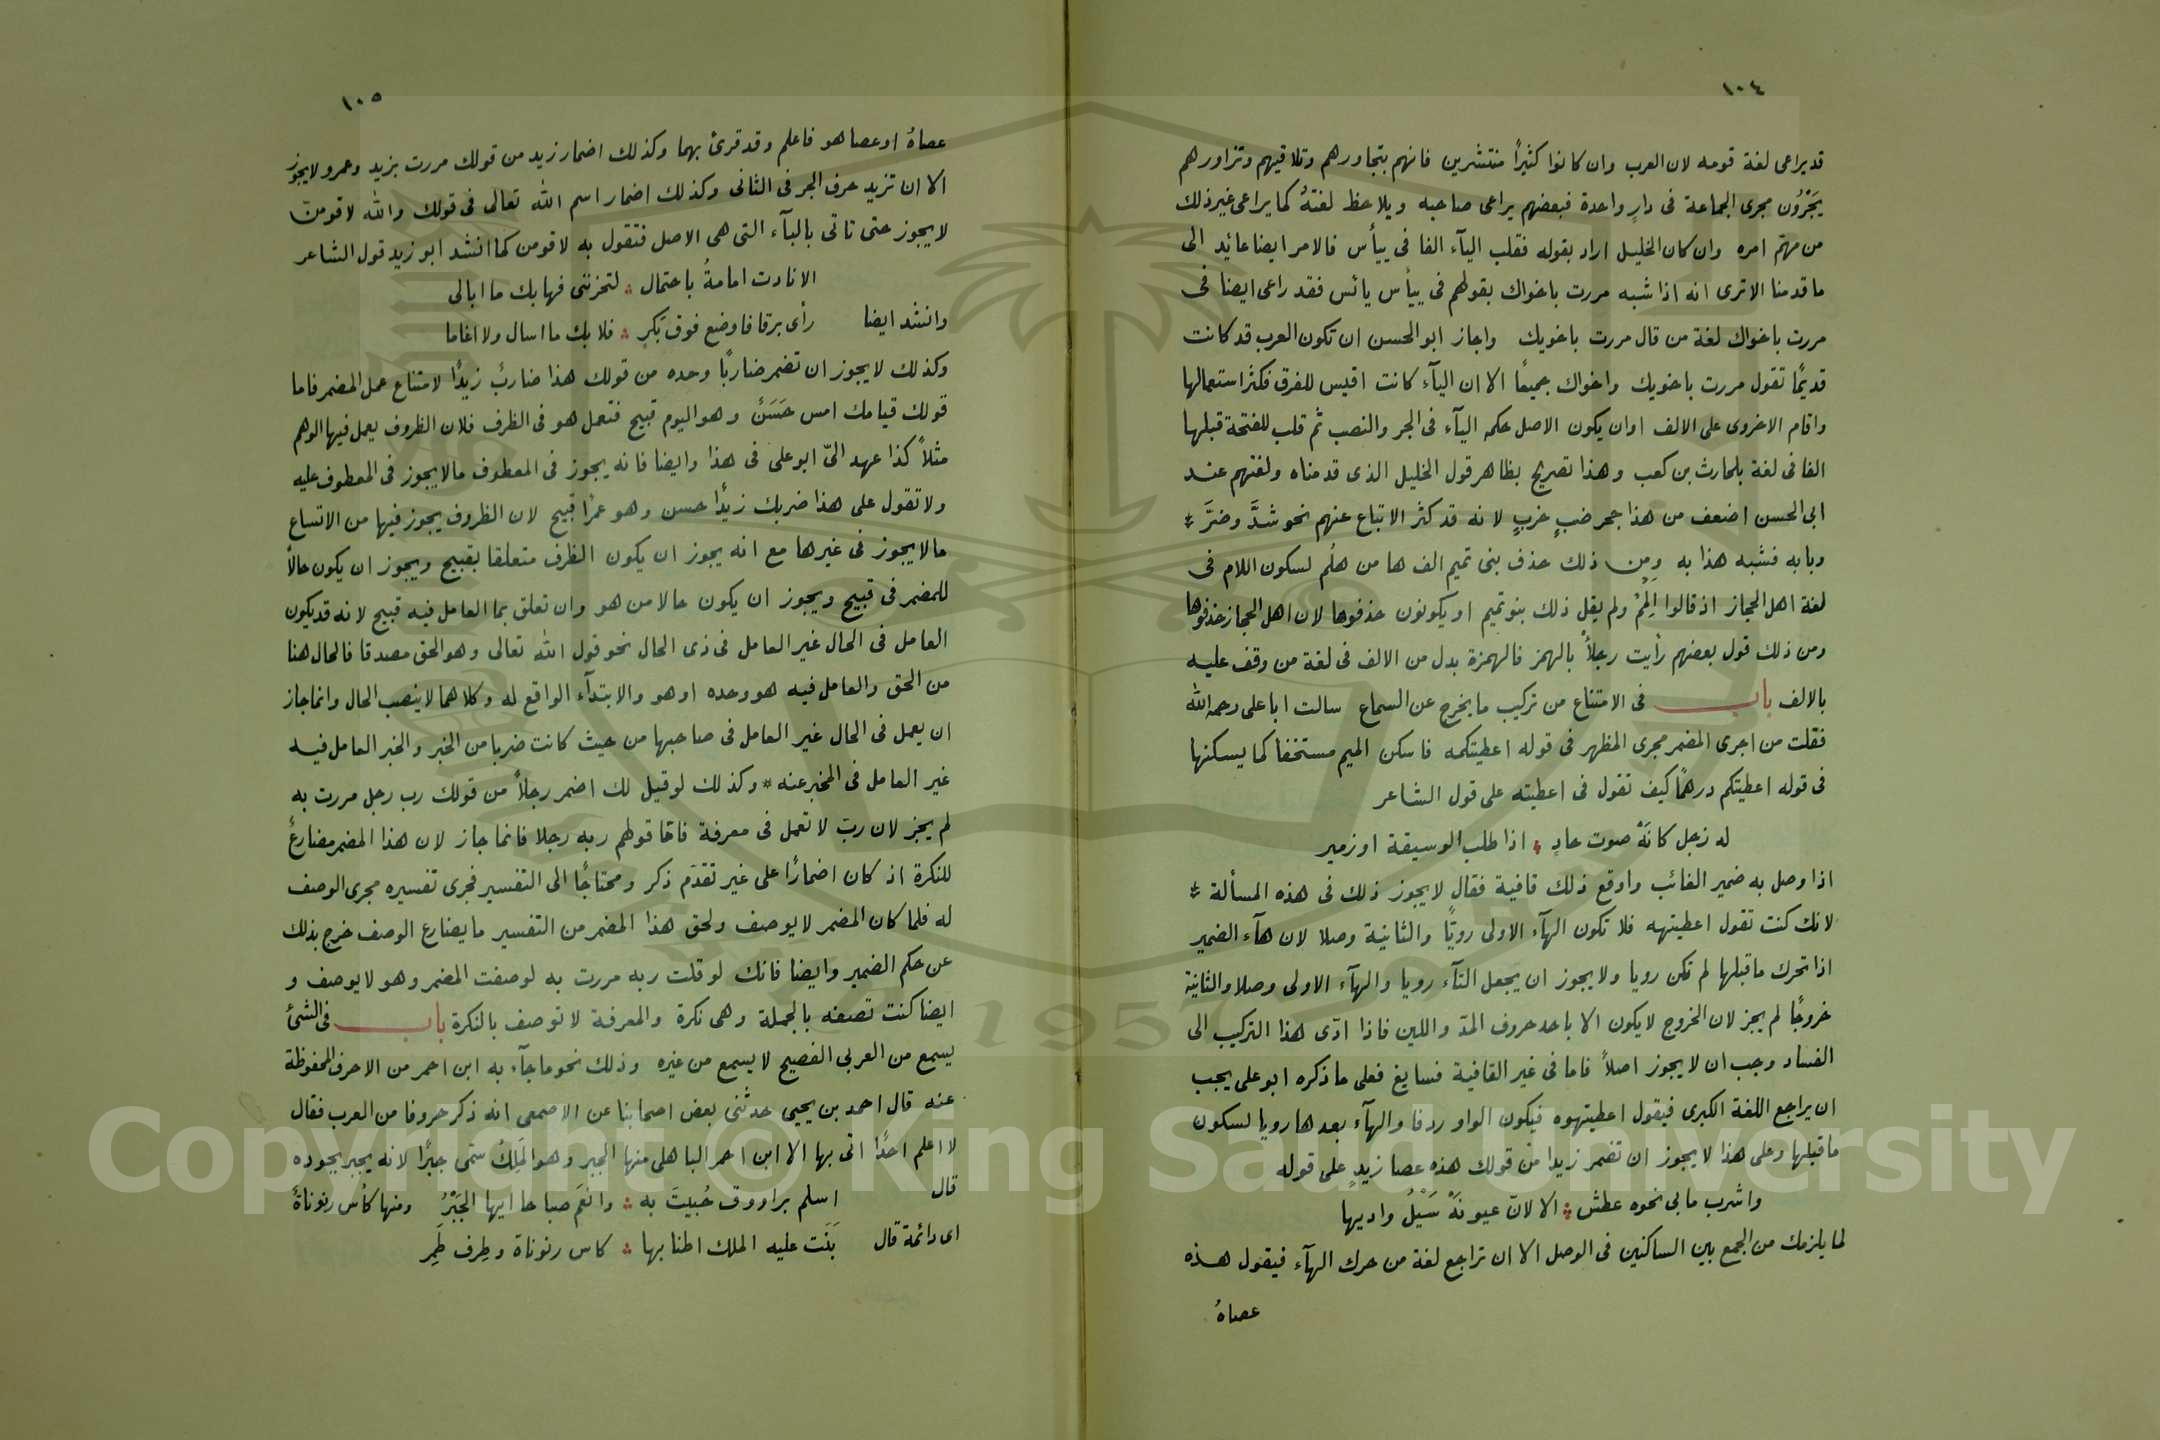 ١٠٤
قد يراعى لغة قومه لان العرب وان كانوا كثيرًا منتشرين فانهم بتجاورهم وتلاقيهم وتزاورهم
يَجْرُون مجرى الجماعة فى دارٍ واحدة فبعضهم يراعى صاحبه ويلاحظ لغتهُ كما يراعى غير ذلك
من مهمّ امره وان كان الخليل اراد بقوله فقلب اليآء الفا فى ييأس فالامر ايضا عائد الى
ما قدمنا الا ترى انه اذا شبه مررت باخواك بقولهم فى ييأس يائس فقد راعى ايضا فى
مررت باخواك لغة من قال مررت باخويك واجاز ابو الحسن ان تكون العرب قد كانت
قديمًا تقول مررت باخويك واخواك جميعًا الا ان اليآء كانت اقيس للفرق فكثر استعمالها
واقام الاخروى على الالف اوان يكون الاصل حكم اليآء فى الجر والنصب ثم قلب للفتحة قبلها
الفا فى لغة بلحارث بن كعب وهذا تصريح بظاهر قول الخليل الذى قدمناه ولغتهم عند
ابى الحسن اضعف من هذا جحر ضبٍ خربٍ لانه قد كثر الاتباع عنهم نحو شدَّ وضرَّ
وبابه فشبه هذا به ومِن ذلك حذف بنى تميم الف ها من هلُم لسكون اللام فى
لغة اهل الحجاز اذ قالوا المُمْ ولم يقل ذلك بنو تميم او يكونون حذفوها لان اهل الحجاز حذفوها
ومن ذلك قول بعضهم رأيت رجلأ بالهمز فالهمزة بدل من الالف فى لغة من وقف عليه
بالالف باب فى الامتناع من تركيب ما يخرج عن السماع سالت ابا على رحمه الله
فقلت من اجرى المضمر مجرى المظهر فى قوله اعطيتكمه فاسكن الميم مستخفا كما يسكنها
فى قوله اعطيتكم درهمًا كيف تقول فى اعطيته على قول الشاعر
له زجل كانَهْ صوت حادٍ اذا طلب الوسيقة او زمير
اذا وصل به ضمير الغائب واوقع ذلك قافية فقال لا يجوز ذلك فى هذه المسألة
لانك كنت تقول اعطيتهه فلا تكون الهآء الاولى رويًّا والثانية وصلا لان هآء الضمير
اذا تحرك ما قبلها لم تكن رويا ولا يجوز ان يجعل التآء رويا والهآء الاولى وصلا والثانية
خروجًا لم يجز لان الخروج لا يكون الا باحد حروف المدّ واللين فاذا ادّى هذا التركيب الى
الفساد وجب ان لا يجوز اصلاً فاما فى غير القافية فسايغ فعلى ما ذكره ابو على يجب
ان يراجع اللغة الكبرى فيقول اعطيتهوه فيكون الواو ردفا والهآء بعدها رويا لسكون
ما قبلها وعلى هذا لا يجوز ان تضمر زيدا من قولك هذه عصا زيدٍ على قوله
واشرب مابى نحوه عطش الا لانّ عيونَهْ سَيْلُ واديها
لما يلزمك من الجمع بين الساكنين فى الوصل الا ان تراجع لغة من حرك الهآء فيقول هذه
عصاهُ
١٠٥
عصاهُ او عصاهو فاعلم وقد قرئ بهما وكذلك اضمار زيد من قولك مررت بزيد وعمرو لا يجوز
الا ان تزيد حرف الجر فى الثانى وكذلك اضمار اسم الله تعالى فى قولك والله لاقومنّ
لا يجوز حتى تاتى بالبآء التى هى الاصل فتقول به لاقومن كما انشد ابو زيد قول الشاعر
الا نادت امامةُ باحتمال لتحزننى فهابك ما ابالى
وانشد ايضا رأى برقا فاوضع فوق بَكرٍ فلا بك ما اسال ولا اغاما
وكذلك لا يجوز ان تضمر ضاربًا وحده من قولك هذا ضاربٌ زيدًا لامتناع عمل المضمر فاما
قولك قيامك امس حَسَنٌ وهو اليوم قبيح فتعمل هو فى الظرف فلان الظروف يعمل فيها الوهم
مثلاً كذا عهد الىّ ابو على فى هذا وايضا فانه يجوز فى المعطوف مالا يجوز فى المعطوف عليه
ولا تقول على هذا ضربك زيدًا حسن وهو عمرًا قبيح لان الظروف يجوز فيها من الاتساع
مالا يجوز فى غيرها مع انه يجوز ان يكون الظرف متعلقا بقبيح ويجوز ان يكون حالاً
للمضمر فى قبيح ويجوز ان يكون حالا من هو وان تعلق بما العامل فيه قبيح لانه قد يكون
العامل فى الحال غير العامل فى ذى الحال نحو قول الله تعالى وهو الحق مصدقا فالحال هنا
من الحق والعامل فيه هو وحده او هو والابتدآء الواقع له وكلاهما لا ينصب الحال وانما جاز
ان يعمل فى الحال غير العامل فى صاحبها من حيث كانت ضربا من الخبر والخبر العامل فيه
غير العامل فى المخبر عنه * وكذلك لو قيل لك اضمر رجلاً من قولك رب رجل مررت به
لم يجز لان ربّ لا تعمل فى معرفة فامّا قولهم ربه رجلا فانما جاز لان هذا المضمر مضارعٌ
للنكرة اذ كان اضمارًا على غير تقدّم ذكر ومحتاجًا الى التفسير فجرى تفسيره مجرى الوصف
له فلما كان المضمر لا يوصف ولحق هذا المضمر من التفسير ما يضارع الوصف خرج بذلك
عن حكم الضمير وايضا فانك لو قلت ربه مررت به لوصفت المضمر وهو لا يوصف و
ايضا كنت تصفه بالجملة وهى نكرة والمعرفة لا توصف بالنكرة باب فى الشئ
يسمع من العربى الفصيح لا يسمع من غيره وذلك نحو ما جآء به ابن احمر من الاحرف المحفوظة
عنه قال احمد بن يحيى حدثنى بعض اصحابنا عن الاصمعى انه ذكر حروفا من العرب فقال
لا اعلم احدًا اتى بها الا ابن احمر الباهلى منها الجبر وهو المَلِكُ سمّى جبرًا لانه يجبر بجوده
قال اسلم براووق حُبيتَ به وانعَم صباحا ايها الجَبْرُ ومنها كأس رنوناةٌ
اى دائمة قال بَنَت عليه الملك اطنابها كاس رنوناة وطِرف طَمِر
Copyright © King Saud University
1957